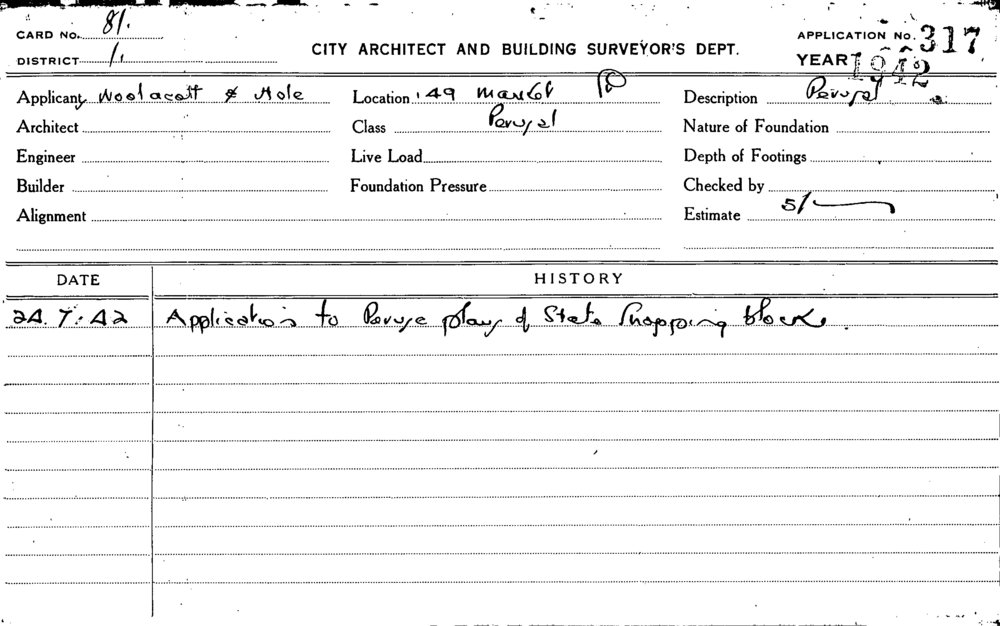 CARD No. 81.
DISTRICT 1.
CITY ARCHITECT AND BUILDING SURVEYOR'S DEPT.
APPLICATION No. 317
YEAR 1942
Applicant Woolacott & Hole
Location 49 Market
Description Perusal
Architect
Class Perusal
Nature of Foundation
Engineer
Live Load
Depth of Footings
Builder
Foundation Pressure
Checked by
Alignment
Estimate 5/-
DATE HISTORY
24.7.42 Application to Peruse plans of State Shopping block.